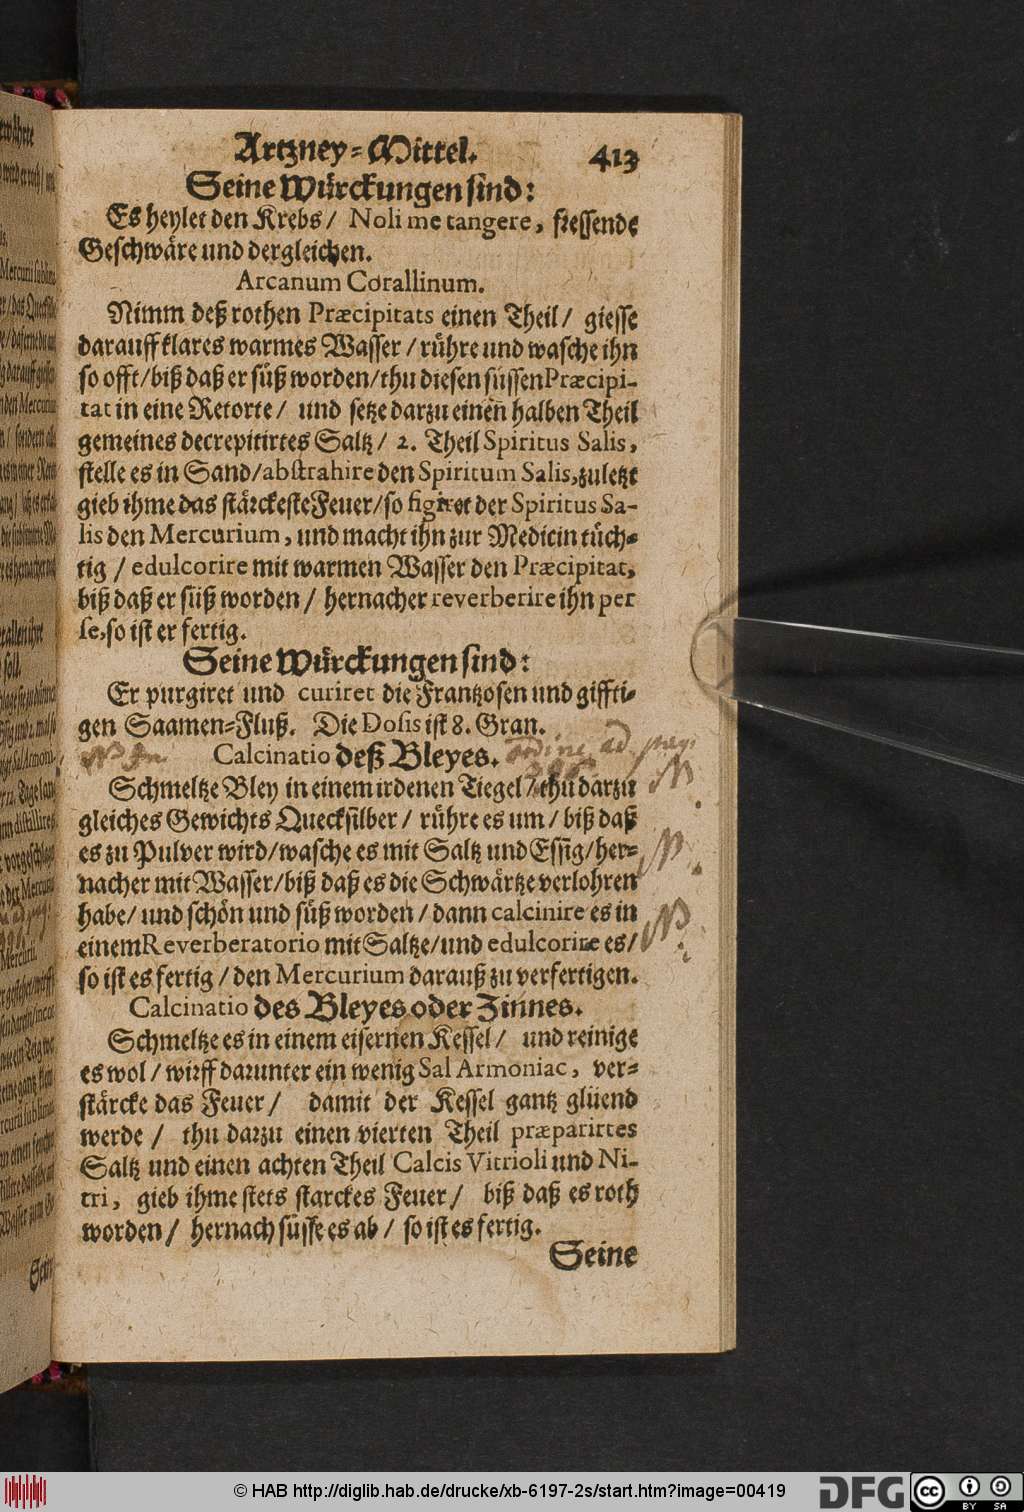 Artzney-Mittel. 413
Seine Würckungen sind:
Es heylet den Krebs/ Noli me tangere, fressende
Geschwäre und dergleichen.
Arcanum Corallinum.
Nimm deß rothen Præcipitats einen Theil/ giesse
darauff klares warmes Wasser/rühre und wasche ihn
so offt/biß daß er süß worden/thu diesen süssen Præcipi-
tat in eine Retorte/ und setze darzu einen halben Theil
gemeines decrepitirtes Saltz/ 2. Theil Spiritus Salis,
stelle es in Sand/abstrahire den Spiritum Salis, zuletzt
gieb ihme das stärckeste Feuer/so figiret der Spiritus Sa-
lis den Mercurium, und macht ihn zur Medicin tüch-
tig/ edulcorire mit warmen Wasser den Præcipitat,
biß daß er süß worden/ hernacher reverberire ihn per
se, so ist er fertig.
Seine Würckungen sind:
Er purgiret und curiret die Frantzosen und giffti-
gen Saamen-Fluß. Die Dosis ist 8. Gran.
Calcinatio deß Bleyes. ad pag.
Schmeltze Bley in einem irdenen Tiegel/thu darzu
gleiches Gewichts Quecksilber/ rühre es um/ biß daß
es zu Pulver wird/wasche es mit Saltz und Essig/her-
nacher mit Wasser/biß daß es die Schwärtze verlohren
habe/ und schön und süß worden/ dann calcinire es in
einem Reverberatorio mit Saltze/und edulcorire es/
so ist es fertig/den Mercurium darauß zu verfertigen.
Calcinatio des Bleyes oder Zinnes.
Schmeltze es in einem eisernen Kessel/ und reinige
es wol/ wirff darunter ein wenig Sal Armoniac, ver-
stärcke das Feuer/ damit der Kessel gantz glüend
werde/ thu darzu einen vierten Theil præparirtes
Saltz und einen achten Theil Calcis Vitrioli und Ni-
tri, gieb ihme stets starckes Feuer/ biß daß es roth
worden/ hernach süsse es ab/ so ist es fertig.
Seine
© HAB http://diglib.hab.de/drucke/xb-6197-2s/start.htm?image=00419
DFG
cc BY SA